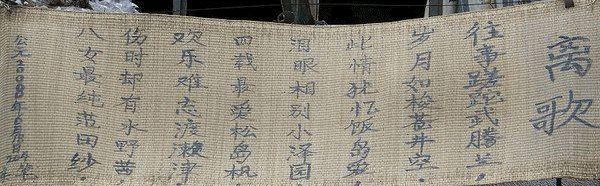 离歌
往事蹉跎武腾兰,
岁月如梭苍井空,
此情犹忆饭岛爱,
泪眼相别小泽园,
四载最爱松岛枫,
欢乐难忘渡濑津,
伤时却有水野
八女最纯范田纱,
公元2008年